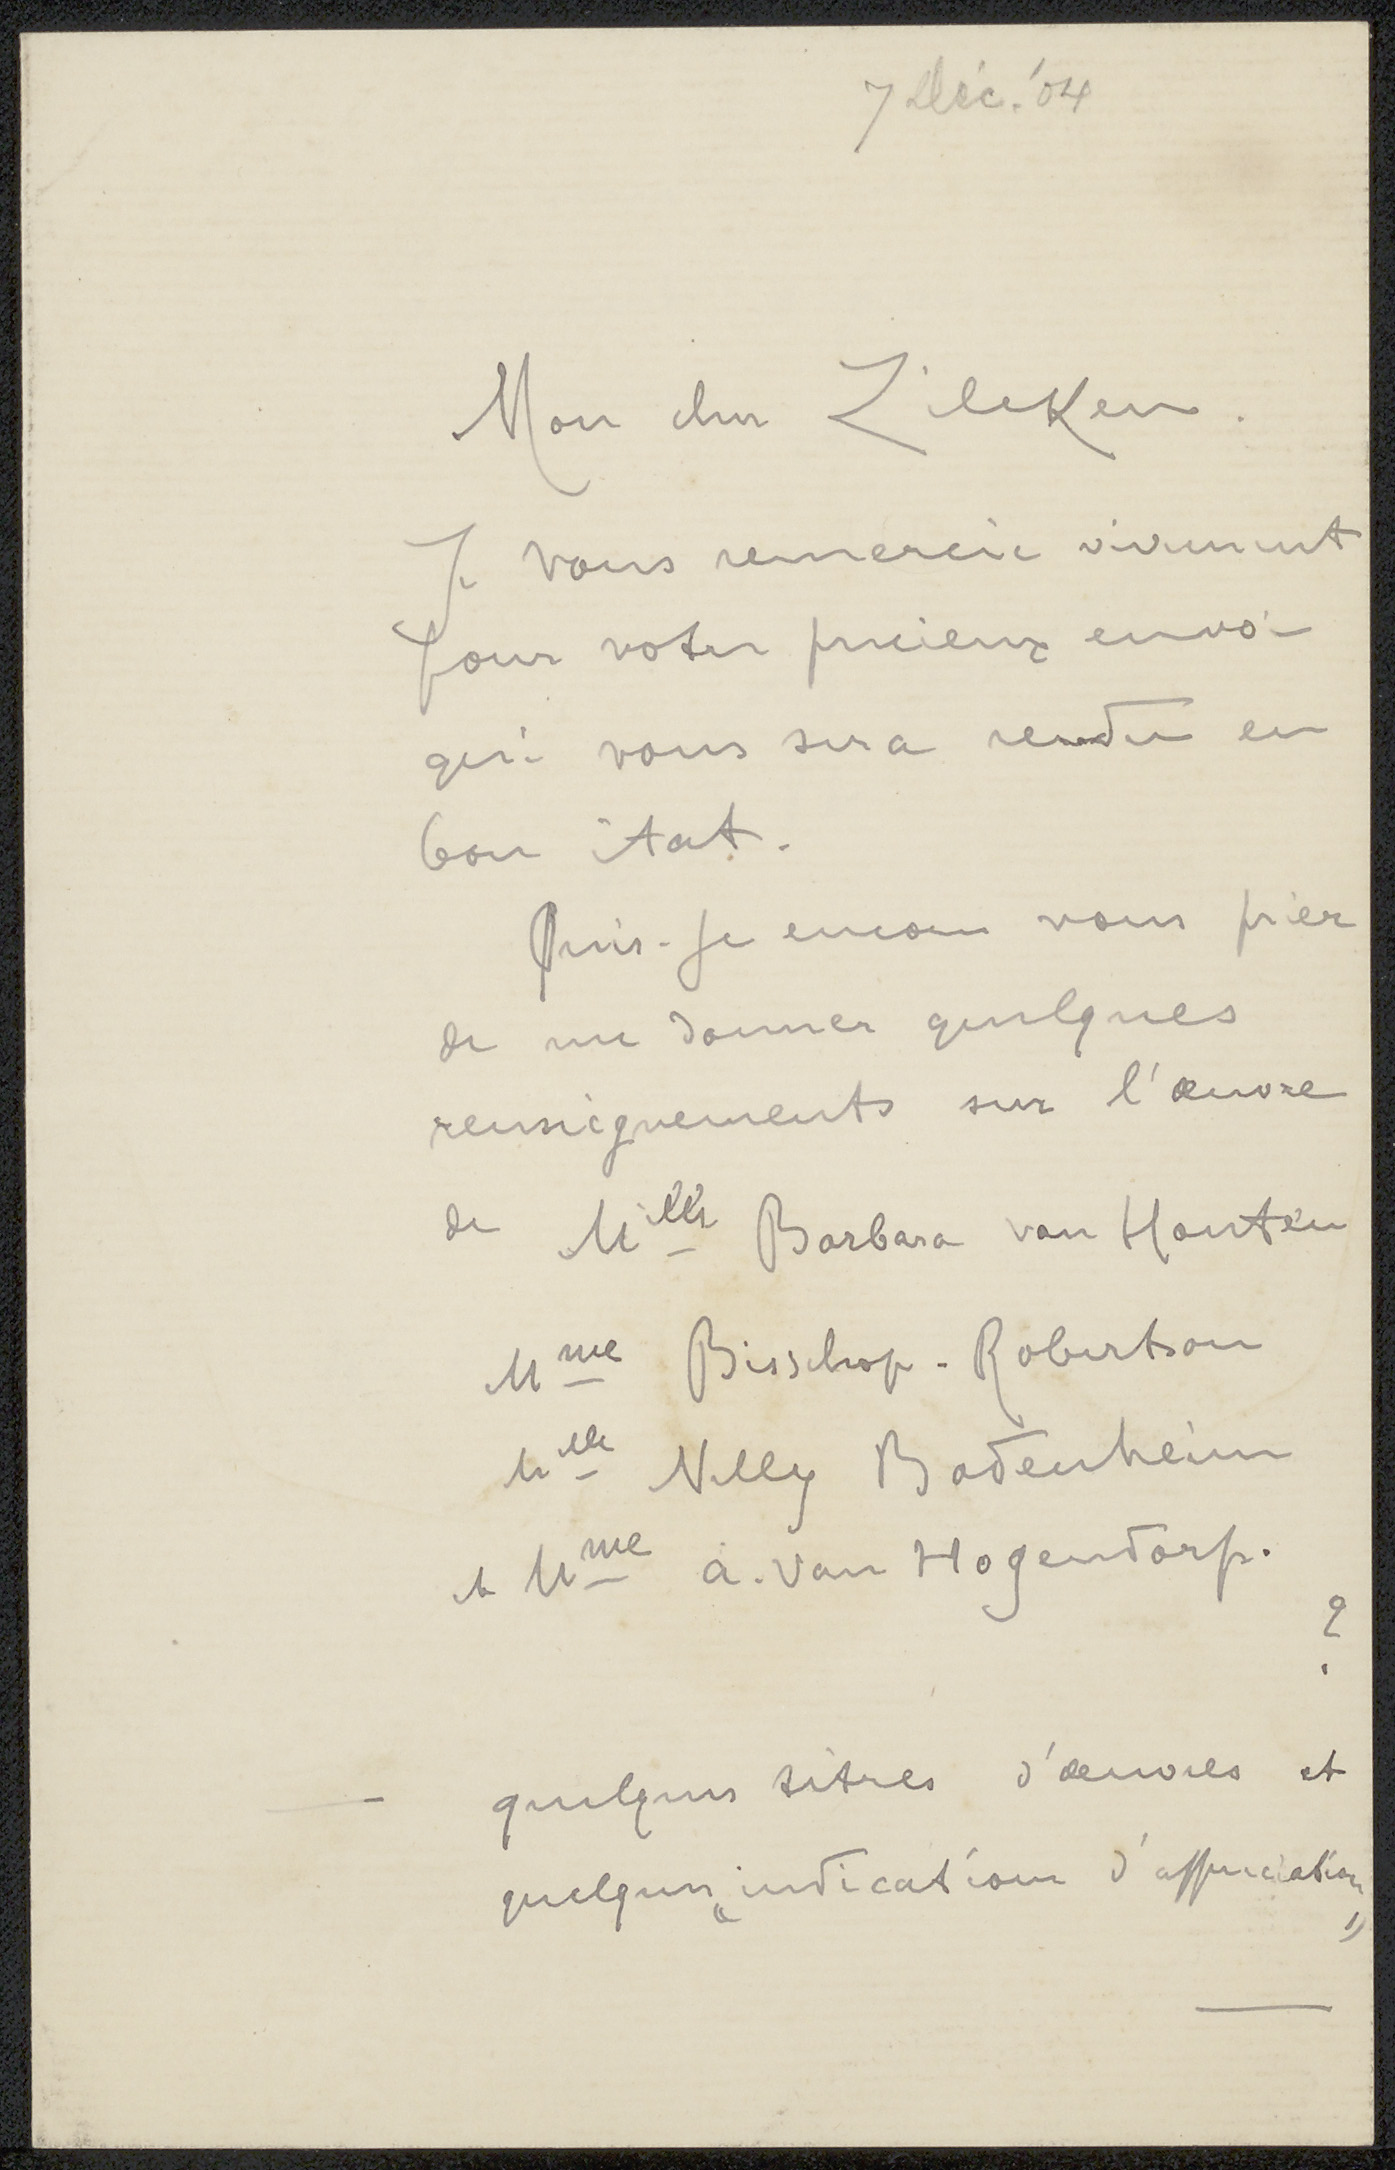 7 Déc. '04
Mon cher Zilcken.
Je vous remercie vivement
pour votre precieux envoi
qui vous sera rendu en
bon état.
Puis-je encore vous prier
de me donner quelques
renseignements sur l'œuvre
de Mlle Barbara van Houten
Mme Bisschop-Robertson
Mlle Nelly Bodenheim
et Mme a. van Hogendorp.
?
quelques titres d'œuvres et
quelques „indications d'appreciation"